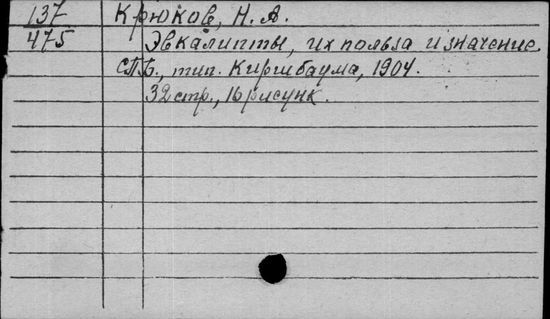 137 Крюков, Н. А.
475 Эвкалипты, их польза и значение.
СПб., тип. Киршбаума, 1904.
32 стр., 16 рисунк.